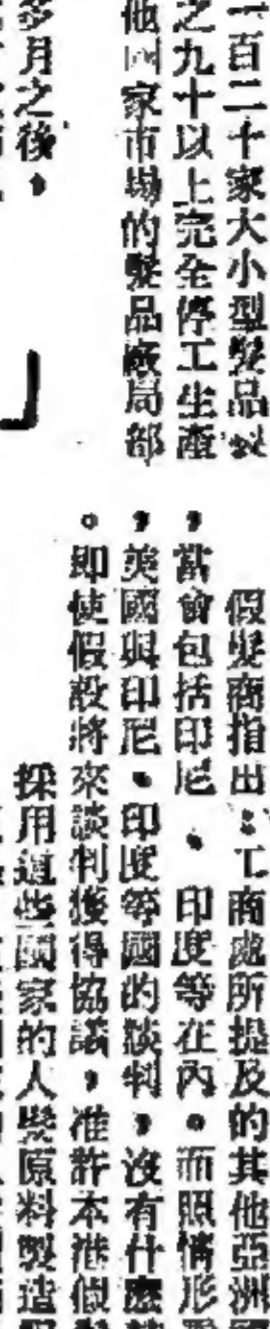 一百二十家大小型髮品製
之九十以上完全停工生產
他國家市場的髮品廠局部
多月之後，
假髮商指出：工商處所提及的其他亞洲
，當會包括印尼、印度等在內。而照情形
，美國與印尼、印度等國的談判，沒有什麼
。即使假設將來談判獲得協議，准許本港假
採用這些國家的人髮原料製造